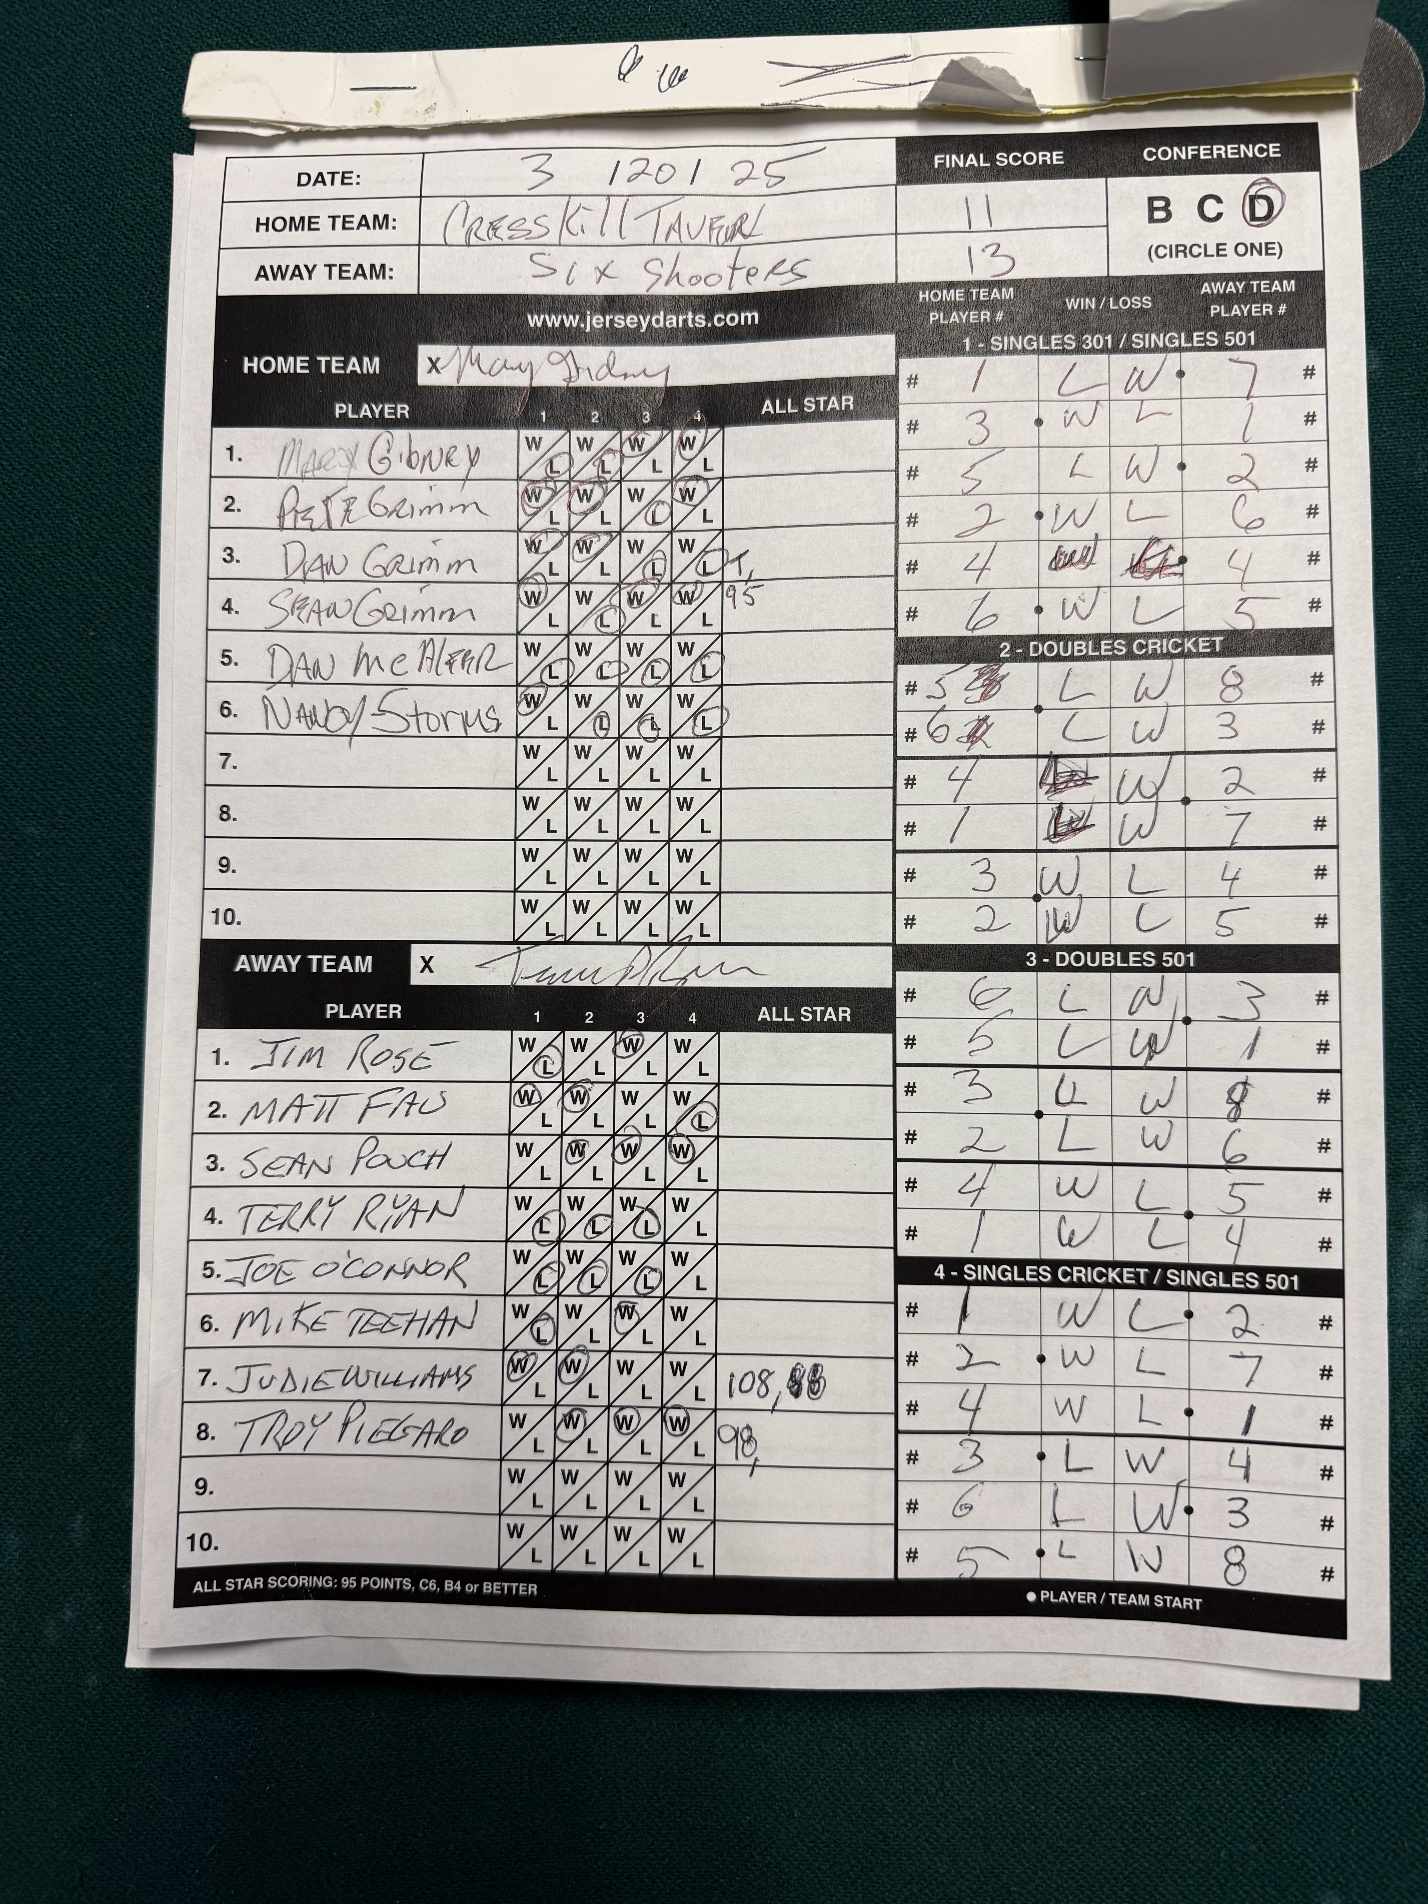 DATE: 3 / 20 / 25
HOME TEAM: CRESSKill TAVERN
AWAY TEAM: Six Shooters
FINAL SCORE
11
13
CONFERENCE
B C D
(CIRCLE ONE)
www.jerseydarts.com
HOME TEAM X
PLAYER 1 2 3 4 ALL STAR
1. MARY GibNEY W L W L W L W L
2. PETE Grimm W L W L W L W L
3. DAN Grimm W L W L W L W L
4. SEAN Grimm W L W L W L W L 95
5. DAN McALEER W L W L W L W L
6. NANCY Storms W L W L W L W L
7. W L W L W L W L
8. W L W L W L W L
9. W L W L W L W L
10. W L W L W L W L
AWAY TEAM X
PLAYER 1 2 3 4 ALL STAR
1. JIM ROSE W L W L W L W L
2. MATT FAU W L W L W L W L
3. SEAN POUCH W L W L W L W L
4. TERRY RYAN W L W L W L W L
5. JOE O'CONNOR W L W L W L W L
6. MIKE TEEHAN W L W L W L W L
7. JUDIE WILLIAMS W L W L W L W L 108,
8. TROY PIEGARO W L W L W L W L 98,
9. W L W L W L W L
10. W L W L W L W L
ALL STAR SCORING: 95 POINTS, C6, B4 or BETTER
HOME TEAM PLAYER # WIN / LOSS AWAY TEAM PLAYER #
1 - SINGLES 301 / SINGLES 501
# 1 L W 7 #
# 3 W L 1 #
# 5 L W 2 #
# 2 W L 6 #
# 4 4 #
# 6 W L 5 #
2 - DOUBLES CRICKET
# 5 L W 8 #
# 6 L W 3 #
# 4 W 2 #
# 1 W 7 #
# 3 W L 4 #
# 2 W L 5 #
3 - DOUBLES 501
# 6 L W 3 #
# 5 L W 1 #
# 3 L W 8 #
# 2 L W 6 #
# 4 W L 5 #
# 1 W L 4 #
4 - SINGLES CRICKET / SINGLES 501
# 1 W L 2 #
# 2 W L 7 #
# 4 W L 1 #
# 3 L W 4 #
# 6 L W 3 #
# 5 L W 8 #
PLAYER / TEAM START